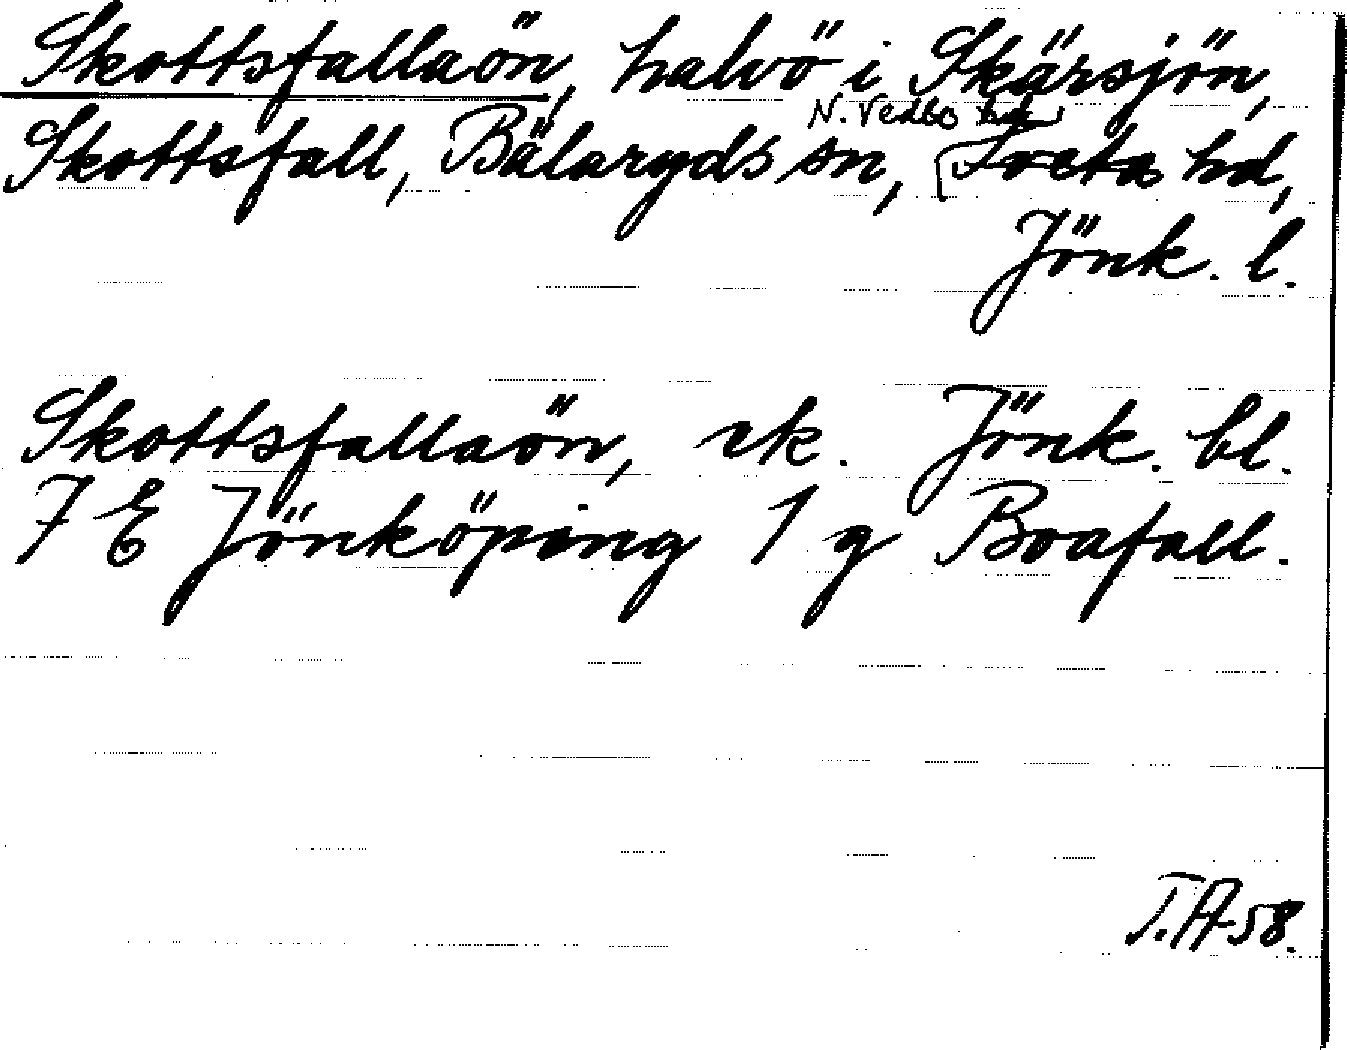 Skottsfallaön, halvö i Skärsjön,
N. Vedbo hd
Skottsfall, Bälaryds sn, Tveta hd,
Jönk. l.
Skottsfallaön, ek. Jönk. bl.
7 E Jönköping 1 g Boafall.
T.A-58.